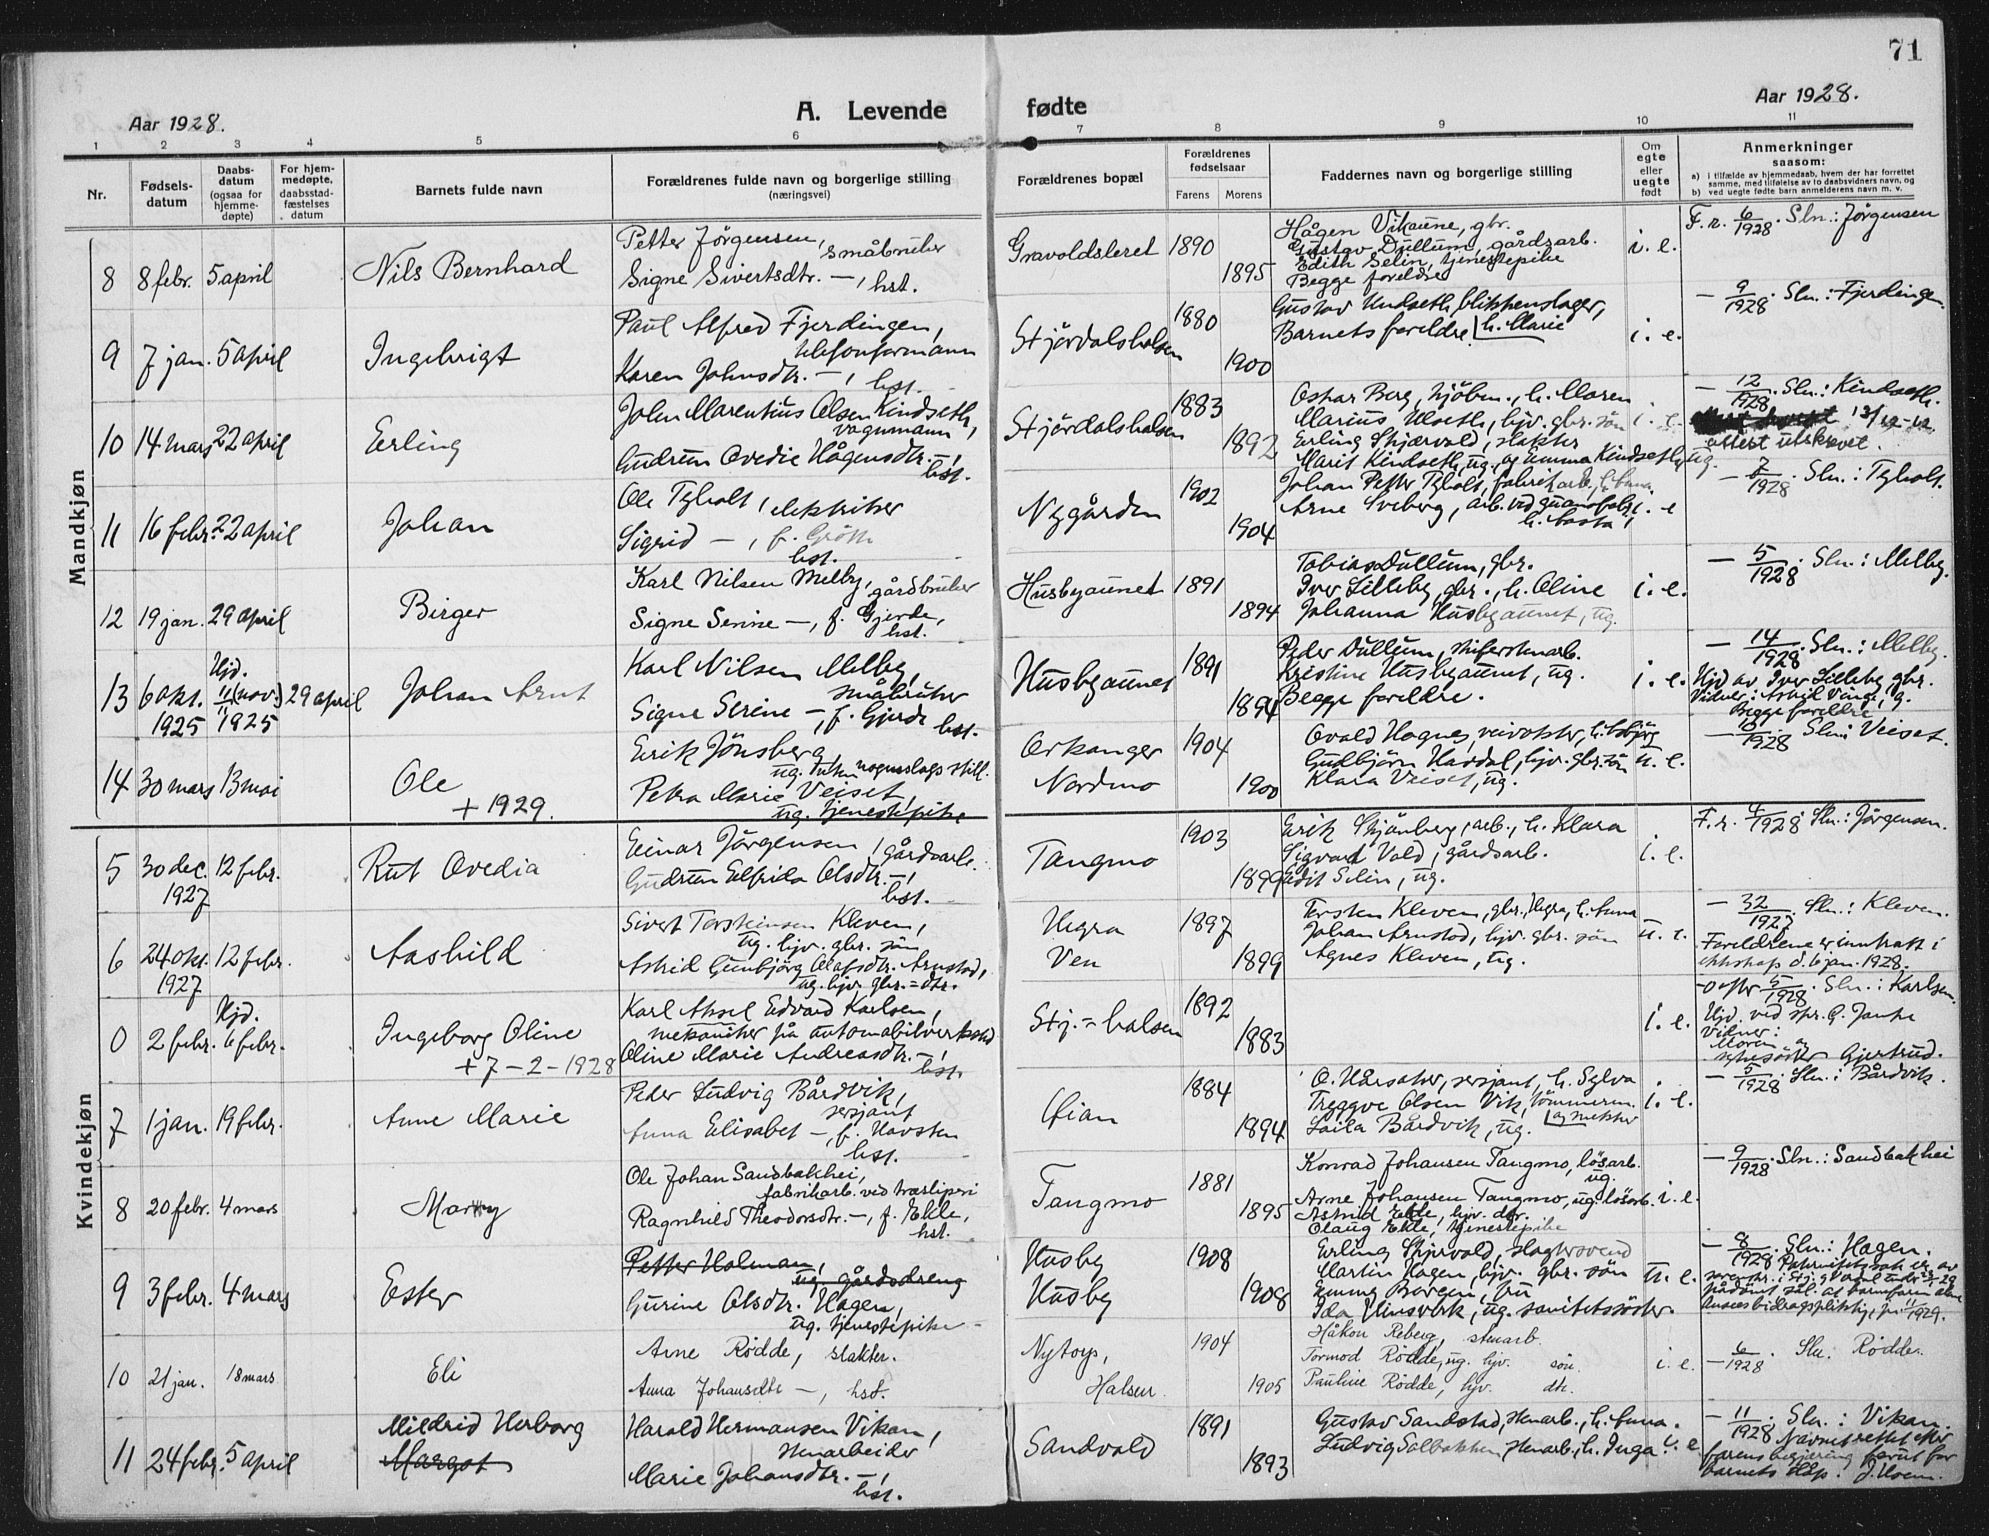 71
Aar 1928.
A. Levende
fødte
Aar 1928.
1 2 3 4 5 6 7 8 9 10 11
Nr.
Fødsels-
datum
Daabs-
datum
(ogsaa for
hjemme-
døpte)
For hjem-
medøpte,
daabsstad-
fæstelses
datum
Barnets fulde navn
Forældrenes fulde navn og borgerlige stilling
(næringsvei)
Forældrenes bopæl
Forældrenes
fødselsaar
Farens Morens
Faddernes navn og borgerlige stilling
Om
egte
eller
uegte
født
Anmerkninger
saasom:
a) i tilfælde av hjemmedaab, hvem der har forrettet
samme, med tilføielse av to daabsvidners navn, og
b) ved uegte fødte barn anmelderens navn m. v.
Mandkjøn
8 8 febr. 5 april
Nils Bernhard
Petter Jörgensen,
småbruker
Signe Sivertsdtr. —, hst.
Gravoldsleret 1890
1895
Hågen Vikaune, gbr.
Gustav Dullum, gårdsarb.
Edith Selin, tjenestepike
Begge foreldre
i. e.
F. r. 6/1928. Sln.: Jörgensen
9 7 jan. 5 april
Ingebrigt
Paul Alfred Fjerdingen,
telefonformann
Karen Johnsdtr. —, hst.
Stjördalshalsen 1880
1900
Gustav Undseth, blikkenslager,
h. Marie
Barnets foreldre.
i. e.
— 9/1928. Sln.: Fjerdingen
10 14 mars 22 april
Erling
John Marentius Olsen Kindseth,
vognmann
Gudrun Ovedie Hågensdtr. —,
hst.
Stjördalshalsen 1883
1892
Oskar Berg, kjöbm., h. Maren
Marius Moseth, hjv. gbr. sön
Erling Skjervold, slakter
Marit Kindseth, ug. og Emma Kindseth, ug.
i. e.
— 12/1928. Sln.: Kindseth.
attest utskrevet.
11 16 febr. 22 april
Johan
Ole Tyholt, elektriker
Sigrid —, f. Grötte
hst.
Nygården 1902
1904
Johan Petter Tyholt, fabrikarb., h. Anna
Arne Sveberg, arb. ved guanofabr.
i. e
— 7/1928. Sln.: Tyholt.
12 19 jan. 29 april
Birger
Karl Nilsen Melby, gårdbruker
Signe Serine —, f. Gjerde,
hst.
Husbyaunet 1891
1894
Tobias Dullum, gbr.
Iver Lilleby, gbr., h. Oline
Johanna Husbyaunet, ug.
i. e.
— 5/1928. Sln.: Melby.
13 6 okt. 1925
Hjd.
1/11 (nov.) 1925
29 april
Johan Arnt
Karl Nilsen Melby,
småbruker
Signe Serine —, f. Gjerde
hst.
Husbyaunet 1891
1894
Peder Dullum, skiferstenarb.
Kristine Husbyaunet, ug.
Begge foreldre.
i. e.
— 14/1928. Sln.: Melby.
Hjd av Iver Lilleby, gbr.
Begge foreldre
14 30 mars 13 mai
Ole
+ 1929.
Erik Jönsberg,
ug. uten nogenslags still.
Petra Marie Veiset,
ug. tjenestepike
Orkanger 1904
Nordmo 1900
Gudbjörn Havdal, hjv. gbr. sön
Klara Veiset, ug.
u. e.
— 10/1928 Sln: Veiset.
Kvindekjøn
5 30 dec. 12 febr.
1927
Rut Ovedia
Einar Jörgensen, gårdsarb.
Gudrun Elfrida Olsdtr. —,
hst.
Tangmo 1903
1899
Erik Skjönberg, arb., h. Klara
Sigvart Vold, gårdsarb.
Edit Selin, ug.
i. e.
F. r. 4/1928. Sln.: Jörgensen.
6 24 okt. 12 febr.
1927
Aashild
Sivert Torsteinsen Kleven,
ug. hjv. gbr. sön
Astrid Gunbjörg Olafsdtr. Arnstad,
ug. hjv. gbr. = dtr.
Hegra 1897
Ven 1899
Torsten Kleven, gbr., Hegra, h. Anna
Johan Arnstad, hjv. gbr. sön
Agnes Kleven, ug.
u. e.
— 32/1927. Sln.: Kleven.
Foreldrene er inntrått i
ekteskap d. 6 jan. 1928.
0 2 febr. 6 febr.
Hjd.
Ingeborg Oline
+ 7 - 2 - 1928
Karl Aksel Edvard Karlsen,
mekaniker på automobilverksted
Oline Marie Andreasdtr. —,
hst.
Stj. = halsen 1892
1883
i. e.
5/1928. Sln.: Karlsen.
Hjd. ved spr. G. Janke
Vidner:
Moren og
sykesöster Gjertrud.
7 1 jan. 19 febr.
Anne Marie
Peder Ludvig Bårdvik,
sersjant
Anna Elisabet —, f. Havsten
hst.
Öian 1884
1894
O. Hårsaker, sersjant, h. Sylva
Tryggve Olsen Vik, tömmerm. og snekker
Laila Bårdvik, ug.
i. e.
— 5/1928. Sln.: Bårdvik.
8 20 febr. 4 mars
Marry
Ole Johan Sandbakhei,
fabrikarb. ved træsliperi
Ragnhild Theodorsdtr. —, f. Ekle,
hst.
Tangmo 1881
1895
Konrad Johansen Tangmo, lösarb.
ug.
Arne Johansen Tangmo, ug. lösarb.
Astrid Ekle, hjv. dtr.
Olaug Ekle, tjenestepike
i. e.
— 9/1928. Sln.: Sandbakhei
9 3 febr. 4 mars
Ester
Petter Holman,
ug. gårdsdreng
Gurine Olsdtr. Hagen,
ug. tjenestepike
Husby 1908
Husby 1908
Erling Skjervold, slaktersvend
Martin Hagen, hjv. gbr. sön
Emma Borgen, fru
Ida Vinsrek, ug. sanitetssöster
u. e.
— 8/1928 Sln.: Hagen.
10 21 jan. 18 mars
Eli
Arne Rödde, slakter.
Anna Johansdtr —, hst.
Nytorp,
Halsen. 1904
1905
Håkon Reberg, stenarb.
Tormod Rödde, ug. hjv. sön.
Pauline Rödde, hjv. dtr.
i. e.
— 6/1928. Sln. Rödde.
11 24 febr. 5 april
Mildrid Herborg
Margot
Harald Hermansen Vikan,
stenarbeider
Marie Johansdtr. —,
hst.
Sandvold 1891
1893
Gustav Sandstad, stenarb., h. Anna.
Ludvig Solbakken, stenarb., h. Inga
i. e
— 11/1928. Sln.: Vikan.
Navnet rettet efter
farens begjæring forut for
barnets dåp. J. Hoem.